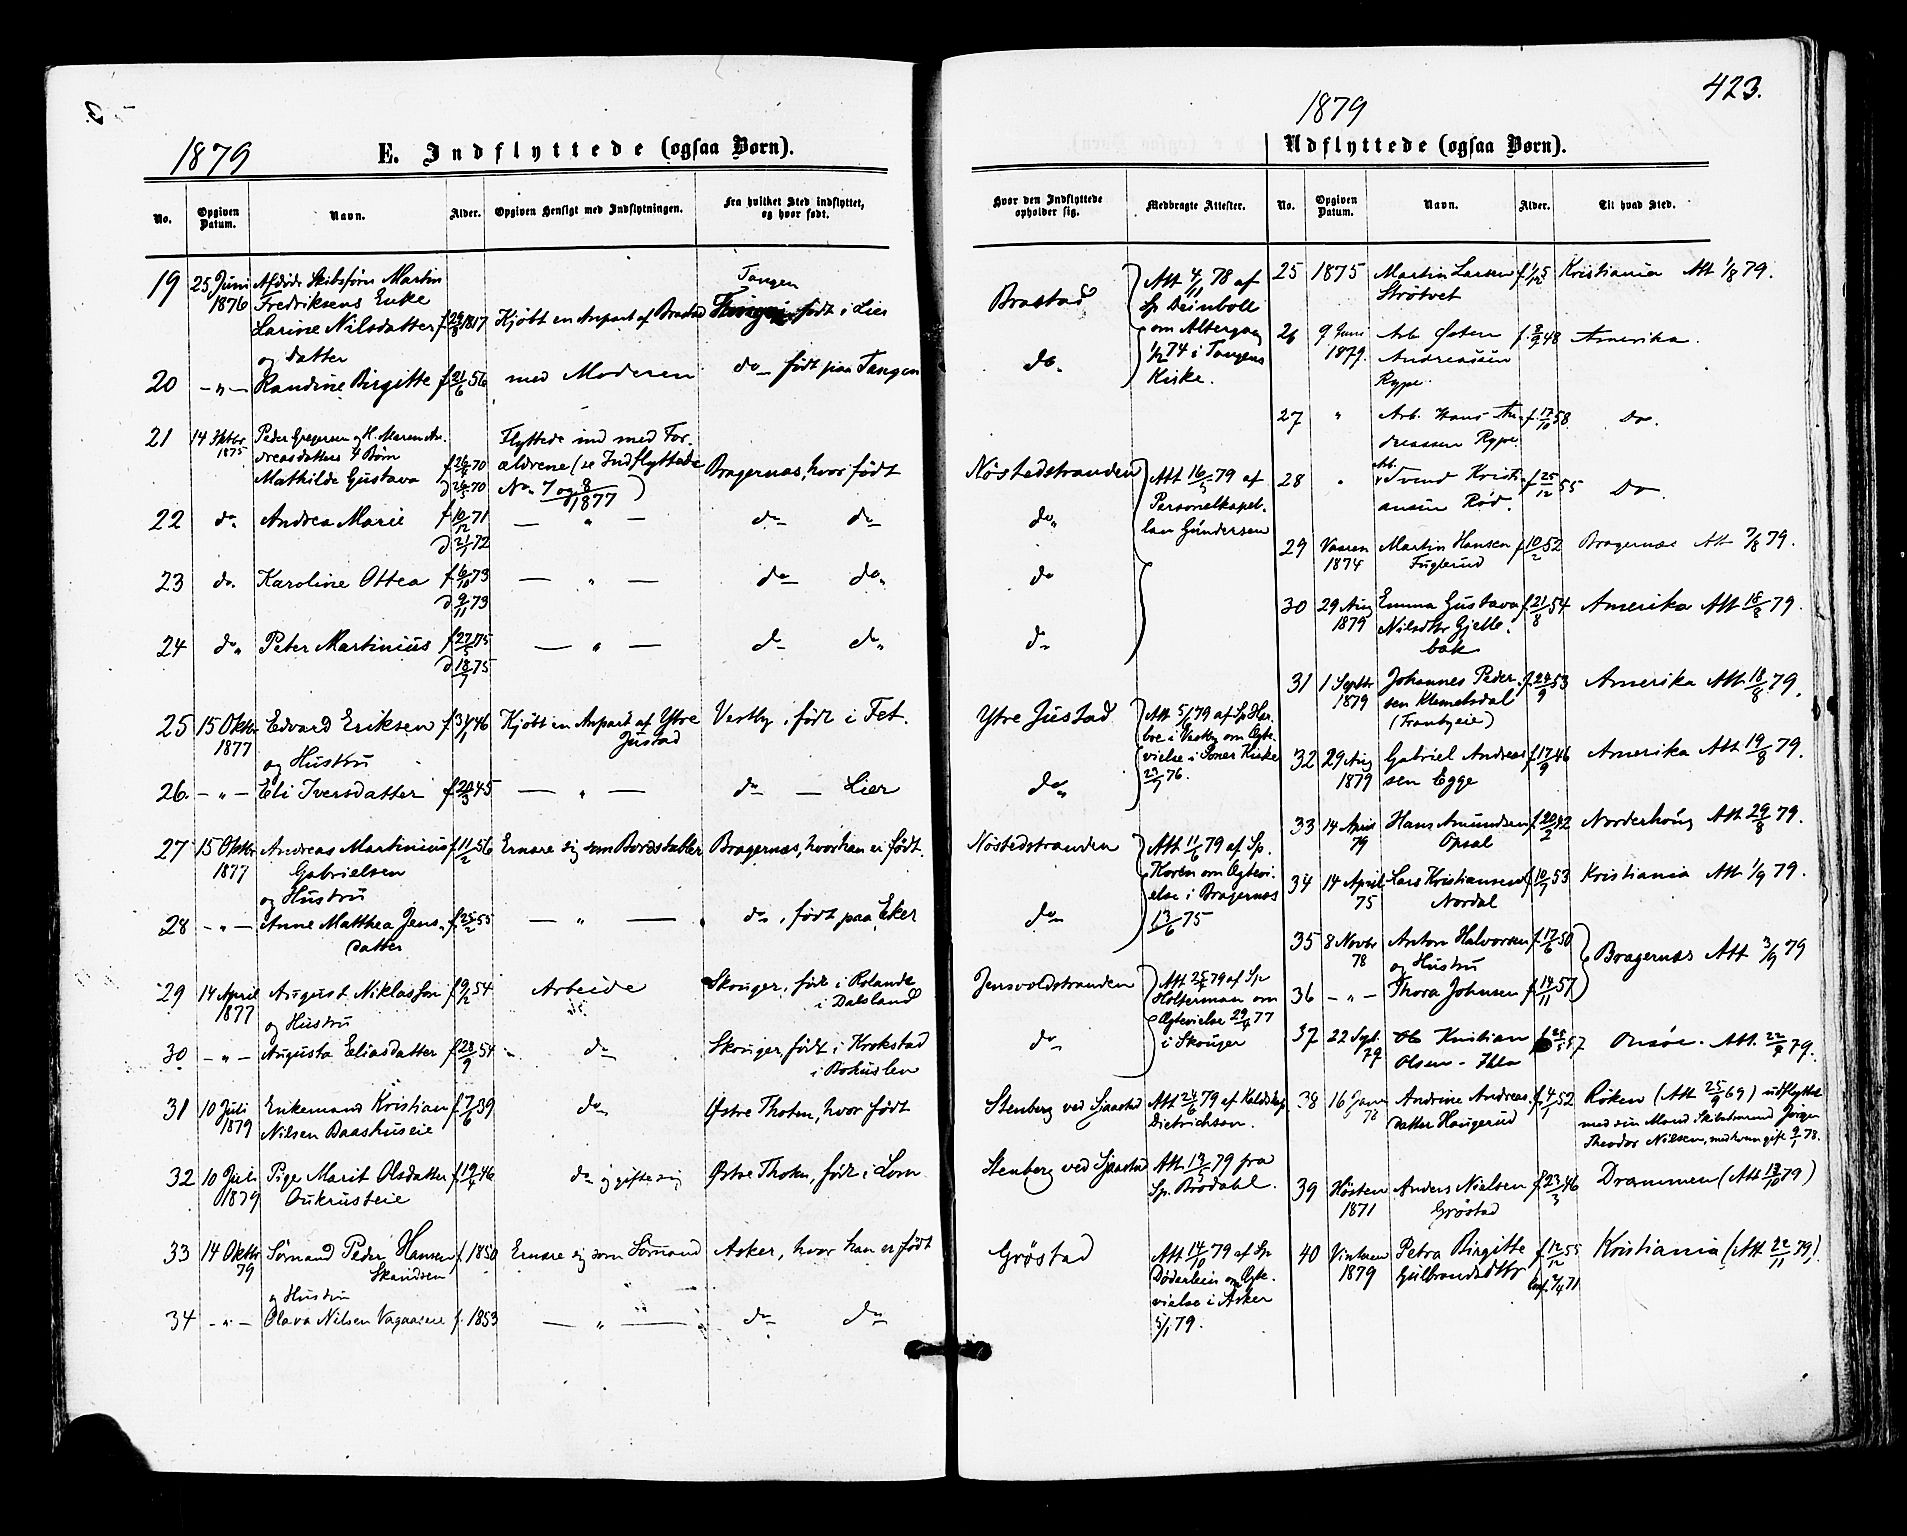 423.
1879
E. Indflyttede (ogsaa Børn).
No. Opgiven Datum. Navn. Alder. Opgiven Hensigt med Indflytningen. Fra hvilket Sted indflyttet, og hvor født.
19 25 Juni 1876 Afdøde Skibstøm Martin
Fredriksens Enke
Larine Nilsdatter 1817 Kjøbt en Anpart af Brastad Tangen født i Lier
og Datter
20 -"- Randine Birgitte f 21/6 56 med Moderen do født paa Tangen
21 14 Oktbr 1875 Peder Gregersen og H. Maren An-
dreasdatters 4 Børn
Mathilde Gustava
Flyttede ind med For-
ældrene (se Indflyttede
No 7 og 8 1877)
Bragernæs, hvor født
22 do Andrea Marie f 10/12 71 d 21/1 72 — " — do do
23 do. Karoline Ottea f 6/10 73 d 9/11 73 — " — do do
24 do Peter Martinius f 27/5 75 d 18/7 75 — " — do do
25 15 Oktbr 1877 Edvard Eriksen f 31/1 46 Kjøbt en Anpart af Ytre Justad Vestby, født i Fet.
og Hustru
26. -"- Eli Iversdatter f 20/3 45 — " — do — Lier
27 15 Oktbr 1877 Andreas Martinius f 11/2 56 Ernære sig som Bordstabler Bragernæs, hvor han er født.
Gabrielsen
og Hustru
28 -"- Anne Matthea Jens- f 25/2 55 — " — do, født paa Eker
datter
29 14 April 1877 August Niklasson f 9/12 54 Arbeide Skouger, født i Rolanda
i Dalsland
og Hustru
30 -"- Augusta Eliasdatter f 28/9 54 do Skouger, født i Krokstad
i Bohuslen
31 10 Juli 1879 Enkemand Kristian f 7/6 39 do Østre Thoten, hvor født
Nilsen Baashuseie
32 10 Juli 1879 Pige Marit Olsdatter f 19/4 46 do gifte sig Østre Thoten, født i Lom
Oukrusteie
33 14 Oktbr 79 Sømand Peder Hansen f. 1850 Ernære sig som Sømand Asker, hvor han er født
Skandsen
og Hustru
34 -"- Olava Nilsen f. 1853 — " — do do
1879
Udflyttede (ogsaa Børn).
Hvor den Indflyttede opholder sig. Medbragte Attester. No. Opgiven Datum. Navn. Alder. Til hvad Sted.
Brastad
do.
Att 4/11 78 af
Sp Deinboll
om Altergang
1/12 74 i Tangens
Kirke.
Nøstedstranden
Att 16/5 79 af
Personelkapel-
lan Gundersen
do.
do
do
Ytre Justad
Att 5/6 79 af Sp
i Vestby om Ægte-
vielse i Kirke
76.
do
Nøstedstranden
Att 11/6 79 af Sp.
Koren om Ægtevi-
else i Bragernæs
13/6 75
do
Jensvoldstranden
Att 25/5 79 af Sp
Holterman om
Ægtevielse 29/4 77
i Skouger
do
Stenberg ved Sjaastad Att 24/6 79 af Kaldskap
Dietrichson.
Stenberg ved Sjaastad Att 13/5 79 fra
Sp. Brodahl.
Grøstad
Att 14/10 79 af Sp
Døderlein om Ægte-
vielse i Asker
5/1 79.
25 1875 Martin Larsen Kristiania Att 1/8 79.
Strøtvet
26 9 Juni 1879. Arb. Østen f. 2/9 48 Amerika.
Andreassen
Rype.
27 " Arb. Hans An- f. 17/10 58 Do.
dreassen Rype.
28 " Arb. Svend Kristi- f 25/12 55 Do
ansen Rød.
29 Vaaren 1874 Martin Hansen f 10/2 52 Bragernæs Att 7/8 79.
Fuglerud
30 29 Aug 1879 Emma Gustava f. 21/8 54 Amerika Att 18/8 79.
Nilsdtr Gjelle-
bæk
31 1 Septbr 1879 Johannes Peder- f. 24/9 53 Amerika Att 18/8 79.
sen Klemetsdal
(Tranbyeie)
32 29 Aug 1879 Gabriel Andreas- f 17/9 46 Amerika Att 19/8 79.
sen Egge
33 14 April 79 Hans Amundsen f 20/2 42 Norderhoug Att 29/8 79.
Opsal
34 14 April 75 Lars Kristiansen f 10/7 53 Kristiania Att 1/9 79.
Nordal
35 8 Novbr 78 Anton Halvorsen f 17/6 50 Bragernæs Att 3/9 79
og Hustru
36 -"- Thora Johnsen f 14/11 57
37 22 Sept. 79 Ole Kristian f 25/5 57 Onsøe. Att. 22/9 79.
Olsen - Ihle
38 16 Janr 78 Andrine Andreas- f 4/1 52 Røken (Att 25/9 69) udflyttet
datter Haugerud med sin Mand Skibstømrmand Jørgen
Theodor Nilsen, med hvem gift 9/1 78.
39 Høsten 1871 Anders Nielsen f 23/3 46 Drammen (Att 13/10 79)
Grøstad
40 Vinteren 1879 Petra Birgitte f 12/12 55 Kristiania (Att 22/11 79)
Gulbrandsdtr Conf. 71